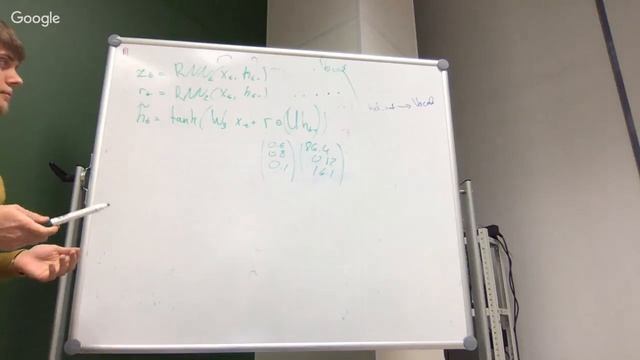 Google
z_t = RNN_z(x_t, h_t-1)
r_t = RNN_z(x_t, h_t-1) . . . . .
h̃_t = tanh(W_3 x_t + r ∘ (U h_t-1))
(0.6 0.8 0.1) (86.4 0.12 16.1)